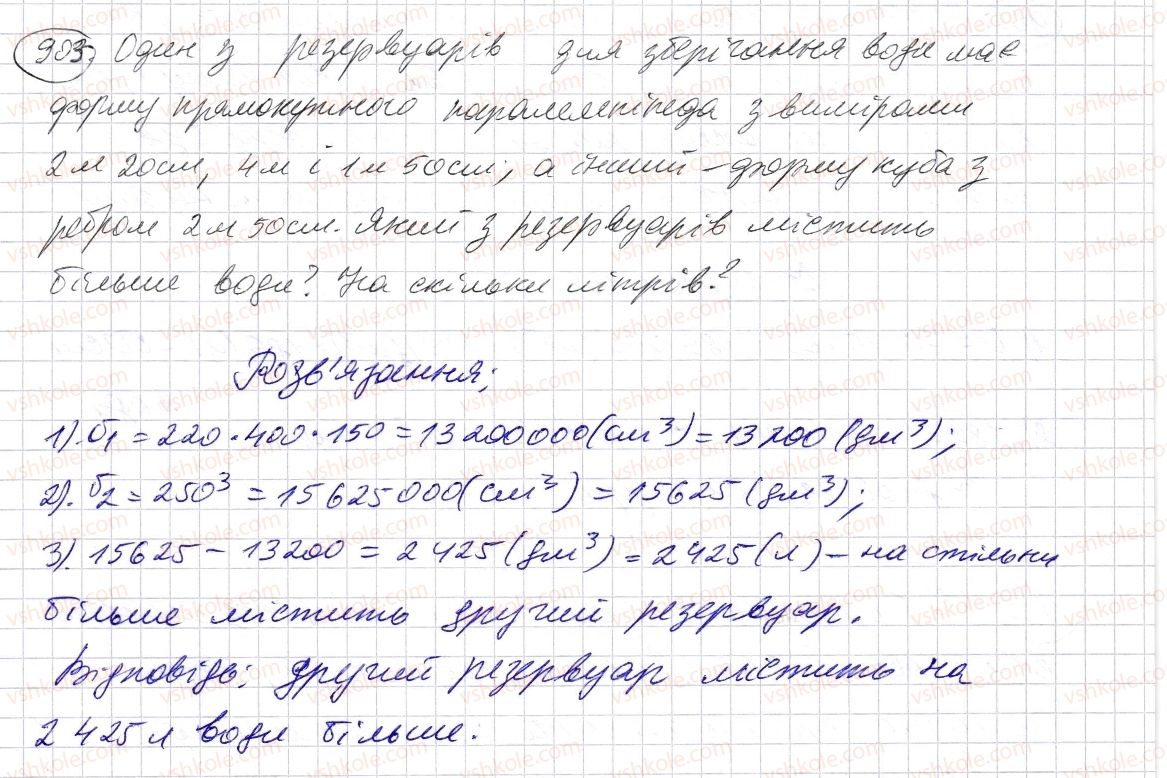 903. Один з резервуарів для зберігання води має
форму прямокутного паралелепіпеда з вимірами
2м 20см, 4м і 1м 50см, а інший – форму куба з
ребром 2м 50см. Який з резервуарів містить
більше води? На скільки літрів?
Розв'язання;
1). V1 = 220·400·150 = 13200000(см³) = 13200(дм³);
2). V2 = 250³ = 15625000(см³) = 15625(дм³);
3). 15625 – 13200 = 2425(дм³) = 2425(л) – на стільки
більше містить другий резервуар.
Відповідь: другий резервуар містить на
2425л води більше.